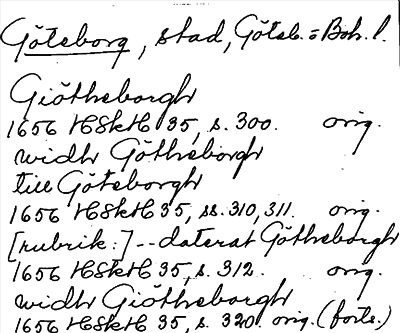 Göteborg, stad, Göteb. o Boh. l.
Giötheborgh
1656 HSkH 35, s. 300. orig.
widh Götheborgh
till Göteborgh
1656 HSkH 35, ss. 310, 311. orig.
[rubrik:] -- daterat Götheborgh
1656 HSkH 35, s. 312. orig.
widh Giötheborgh
1656 HSkH 35, s. 320 orig. (forts.)